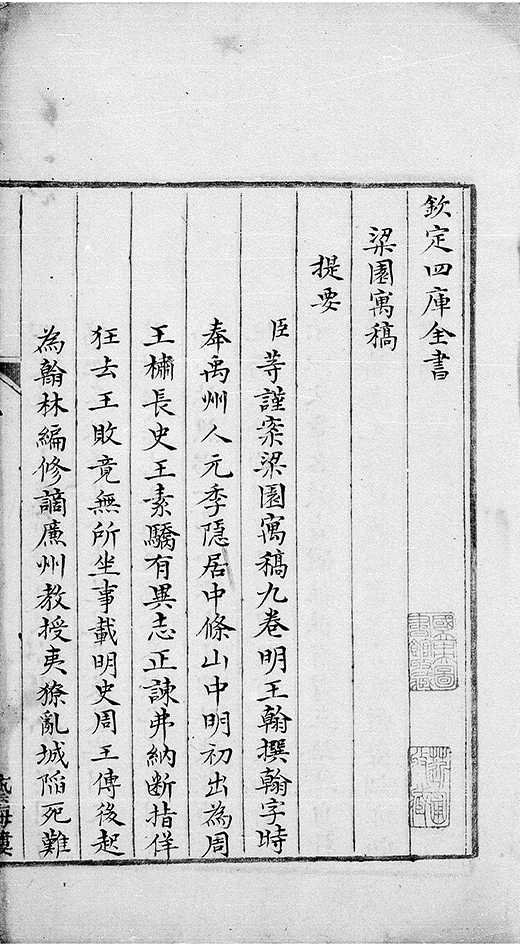 欽定四庫全書
梁園寓稿
提要
臣等謹案梁園寓稿九卷明王翰撰翰字時
奉禹州人元季隱居中條山中明初出為周
王橚長史王素驕有異志正諫弗納斷指佯
狂去王敗竟無所坐事載明史周王傳後起
為翰林編修謫廉州教授夷獠亂城陷死難